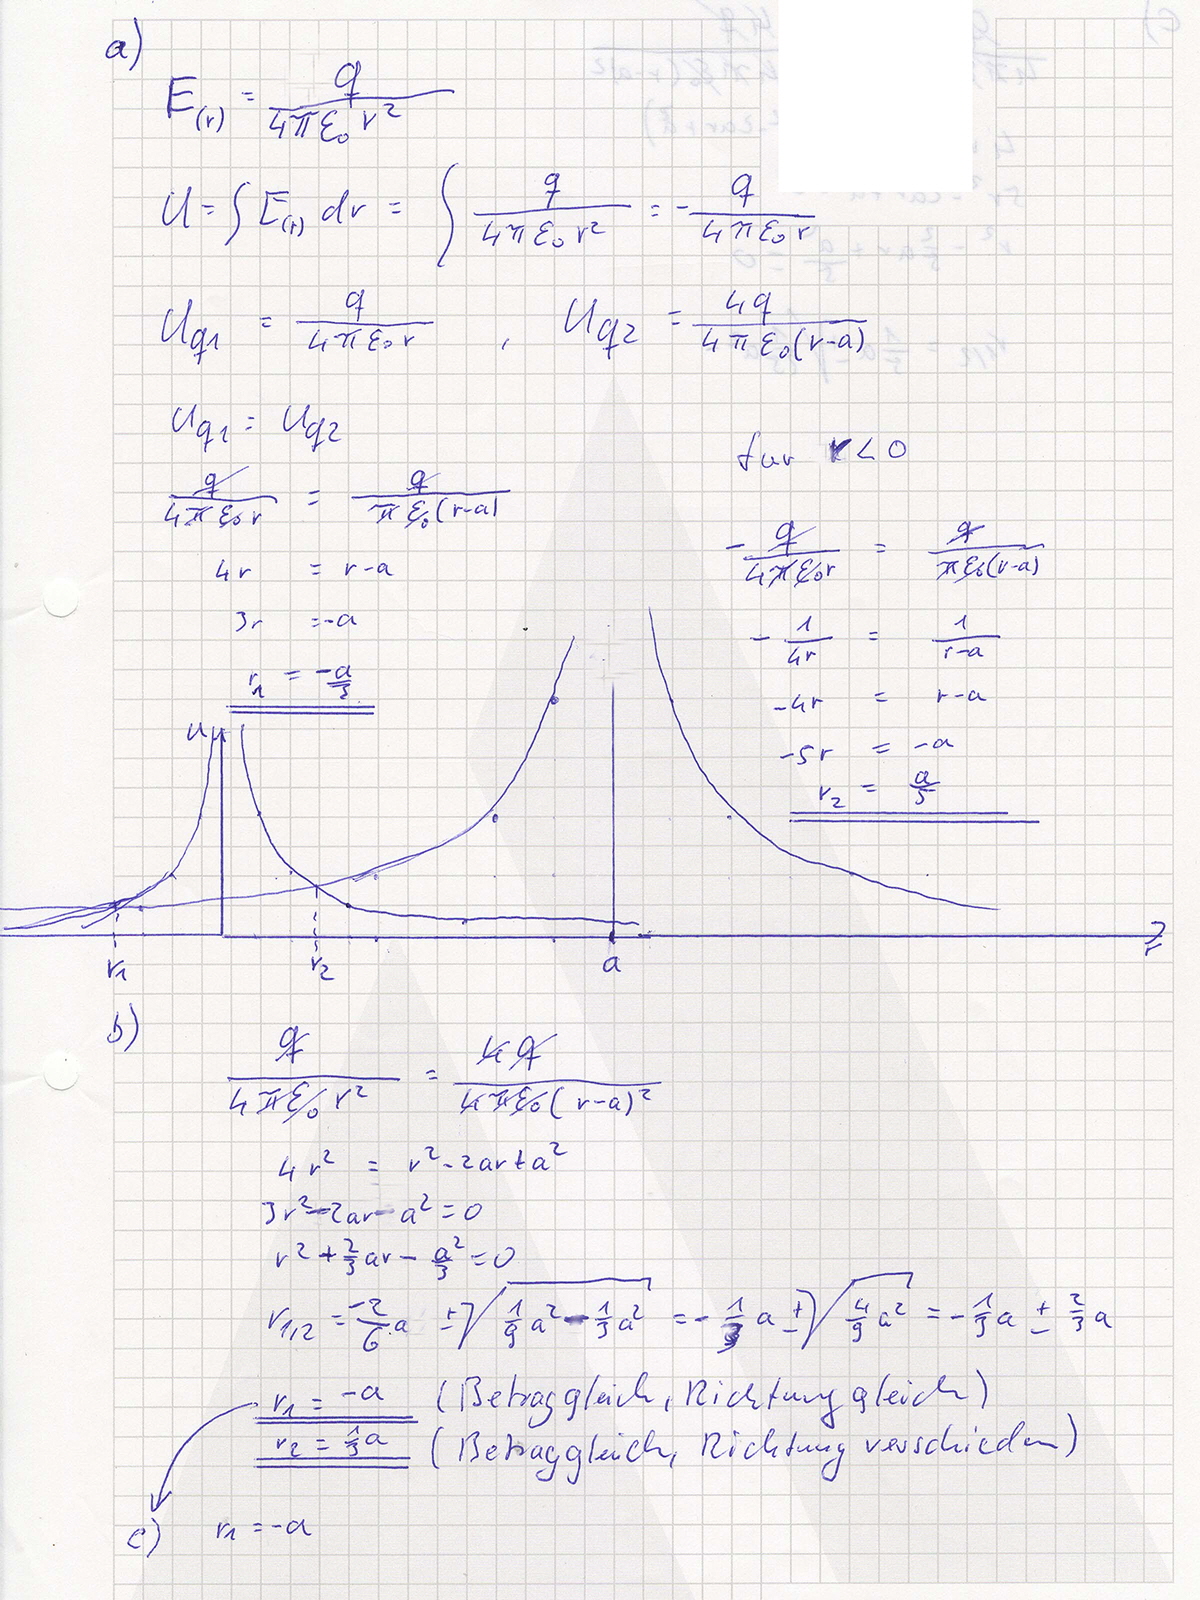 a)
E(r) = q / (4πε₀ r²)
U = ∫ E(r) dr = ∫ q / (4πε₀ r²) = - q / (4πε₀ r)
Uq1 = q / (4πε₀ r) , Uq2 = 4q / (4πε₀ (r-a))
Uq1 = Uq2
q / (4πε₀ r) = q / (πε₀ (r-a))
4r = r-a
3r = -a
r₁ = -a/3
für r < 0
- q / (4πε₀ r) = q / (πε₀ (r-a))
- 1/(4r) = 1/(r-a)
-4r = r-a
-5r = -a
r₂ = a/5
U
r₁ r₂ a r
b)
q / (4πε₀ r²) = 4q / (4πε₀ (r-a)²)
4r² = r² - 2ar + a²
3r² - 2ar - a² = 0
r² + 2/3 ar - a²/3 = 0
r1,2 = -2/6 a ± √(1/9 a² - 1/3 a²) = - 1/3 a ± √(4/9 a²) = - 1/3 a ± 2/3 a
r₁ = -a (Betrag gleich, Richtung gleich)
r₂ = 1/3 a (Betrag gleich, Richtung verschieden)
c) r₁ = -a